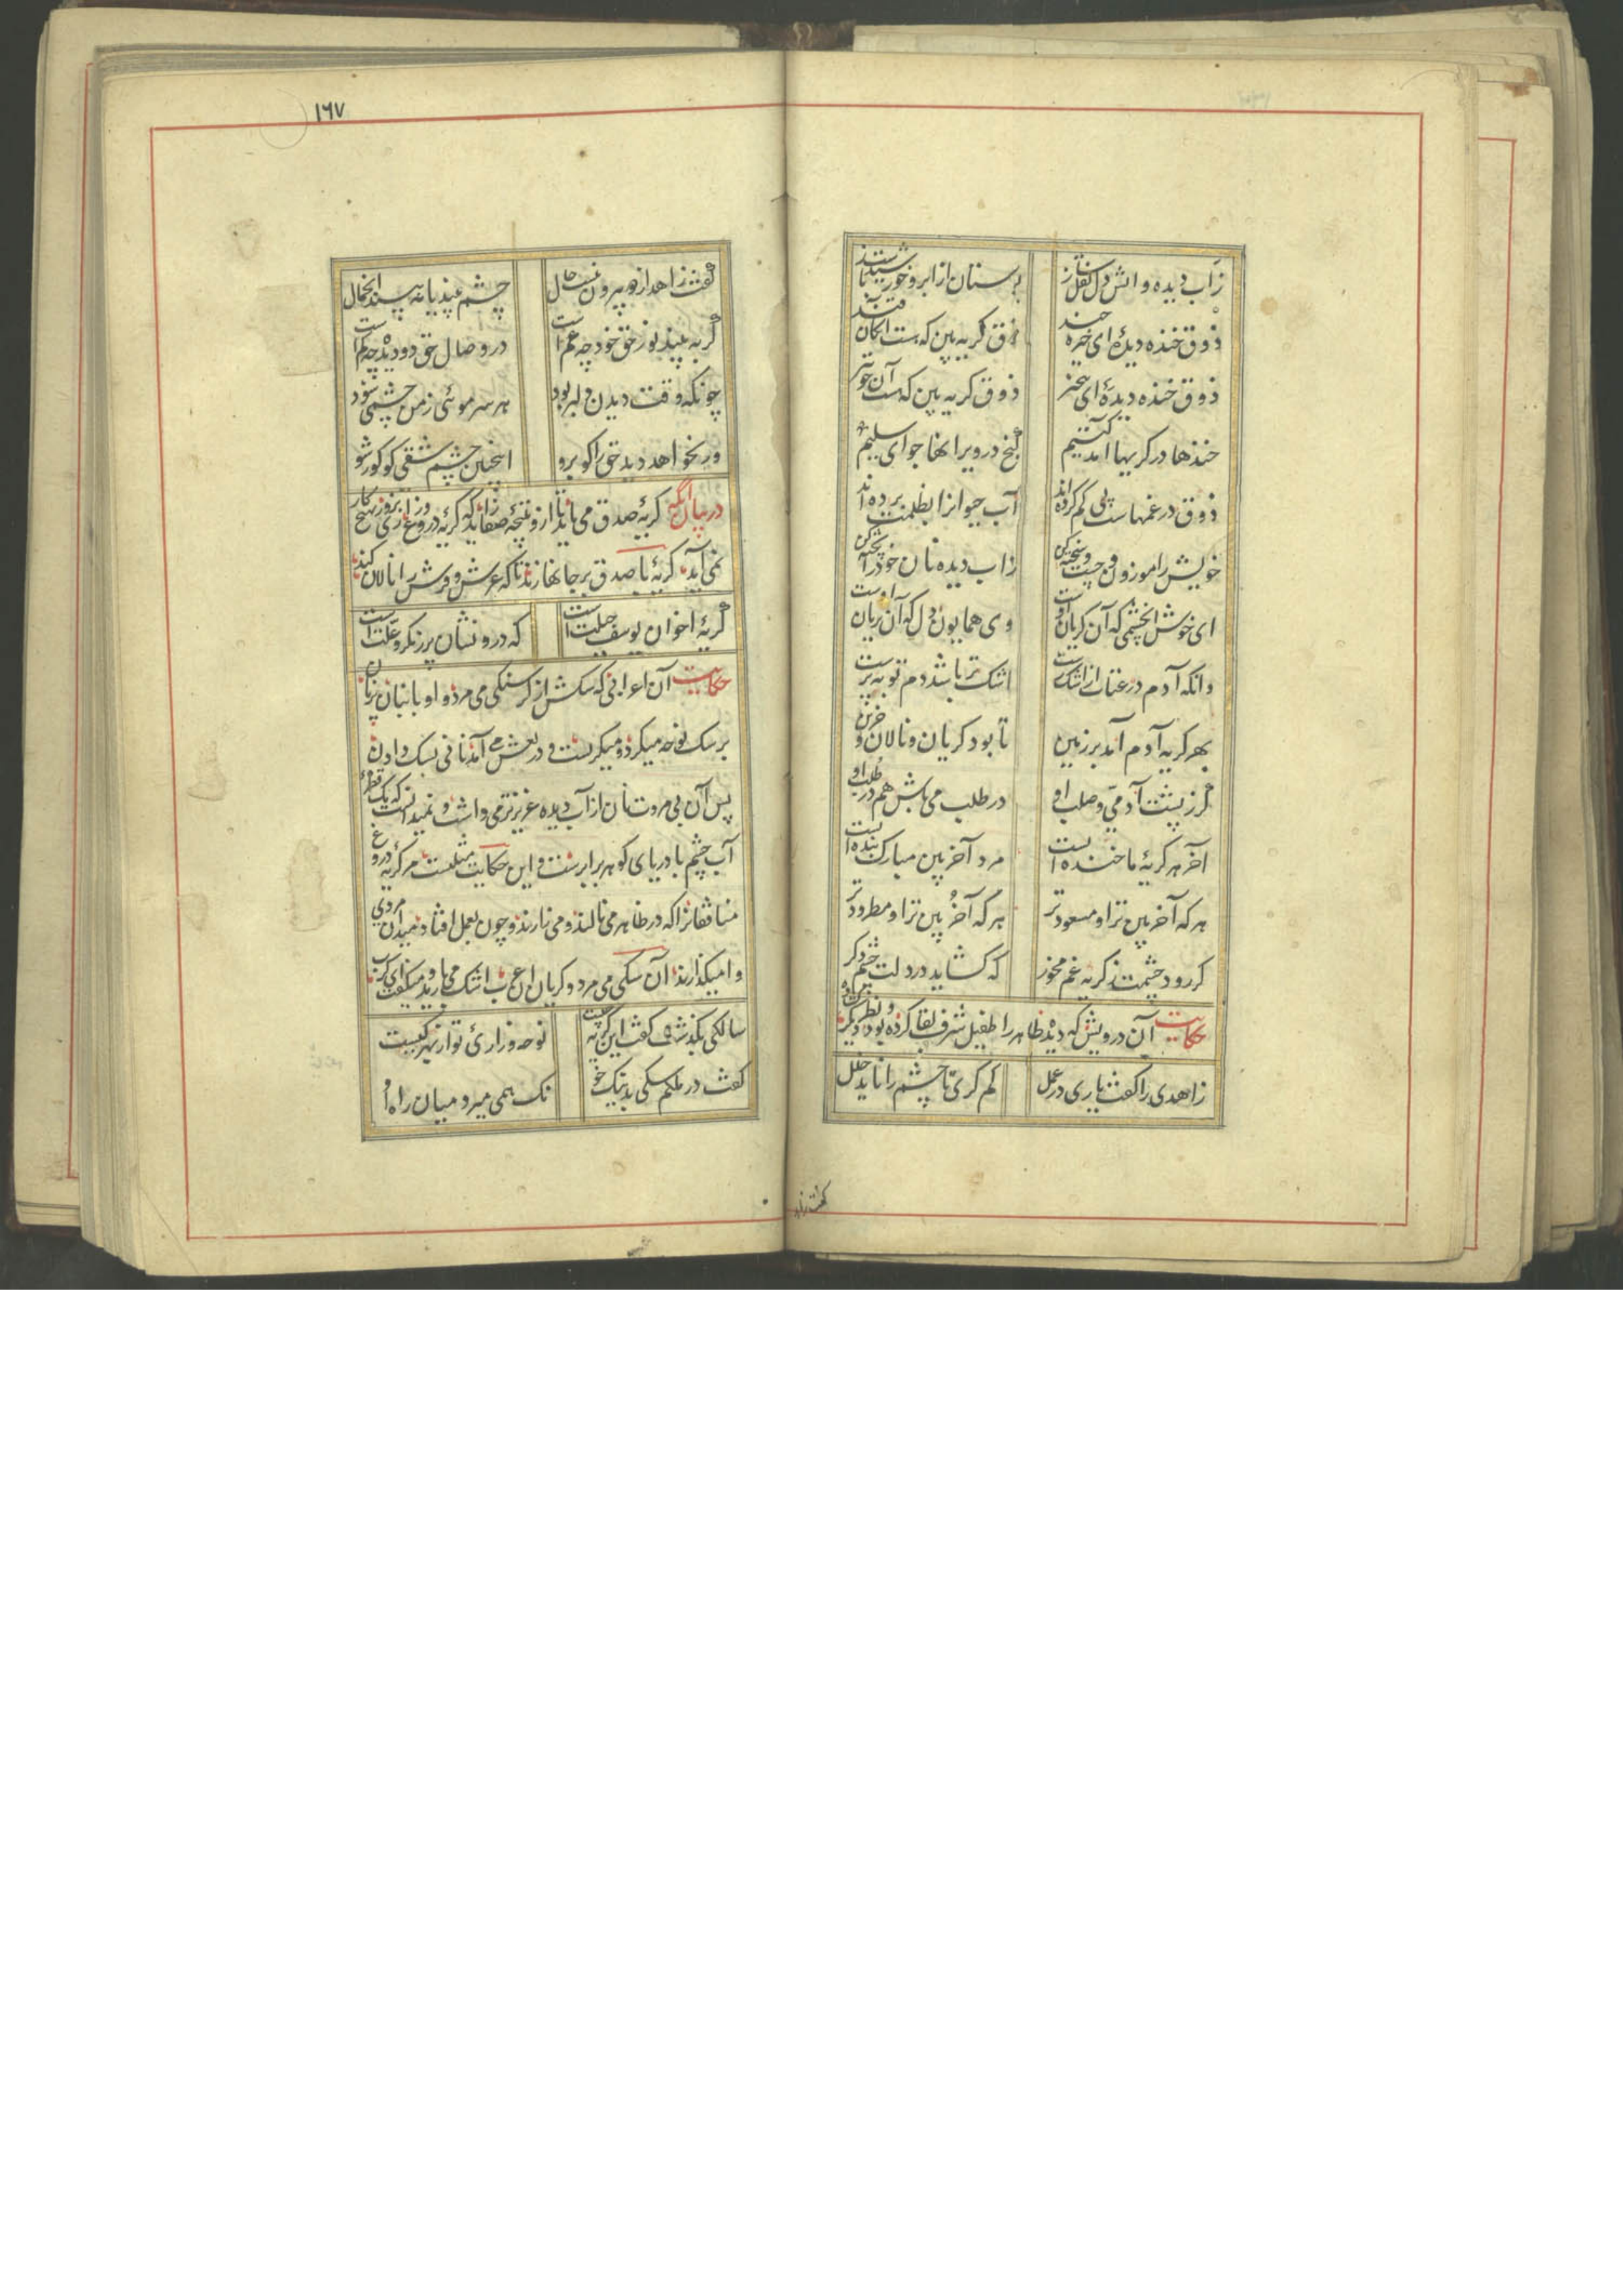 زآب دیده و آتش دل نقل ساز بوستان از ابر و خورشیدست باز
ذوق خنده دیدهٔ ای خیره خند ذوق گریه بین که هست آن کان قند
ذوق خنده دیدهٔ ای بیخبر ذوق گریه بین که هست آن خوبتر
خندها در گریها آمد کتیم گنج در ویرانها جو ای سلیم
ذوق در غمهاست پی گم کرده‌اند آب حیوانرا بظلمت برده‌اند
خویش را موزون و چست و سخته کن زاب دیده نان خود را پخته کن
ای خوش آنچشمی که آن گریان اوست وی همایون دل که آن بریان اوست
وانکه آدم در عتاب از اشک رست اشک تر باشد دم توبه پرست
بهر گریه آدم آمد بر زمین تا بود گریان و نالان و حزین
گر ز پشت آدمی و صلب او در طلب می باش هم در طلب او
آخر هر گریهٔ ما خنده ایست مرد آخر بین مبارک بنده ایست
هر که آخر بین تر او مسعودتر هر که آخُر بین تر او مطرودتر
گر رود چشمت ز گریه غم مخور که گشاید در دلت چشم دگر
حکایت آن درویش که دیدهٔ ظاهر را طفیل شرف لقا کرده بود و نظر
زاهدی را گفت یاری در عمل کم گری تا چشم را ناید خلل
گفت زاهد
۱۶۷
گفت زاهد از دو بیرون نیست حال چشم بیند یا نه بیند آنجمال
گر به بیند نور حق خود چه غم است در وصال حق دو دیده چه کم است
چونکه وقت دیدن دلبر بود هر سر موئی ز من چشمی شود
ور نخواهد دید حق را گو برو اینچنین چشم شقی گو کور شو
در بیان آنکه گریهٔ صدق می باید تا ازو نتیجهٔ صفا زاید که گریهٔ دروغ در آنروز بهیچ کار
نمی آید گریهٔ با صدق بر جانها زند تا که عرش و فرش را نالان کند
گریهٔ اخوان یوسف حیلت است که درونشان پر ز مکر و علت است
حکایت آن اعرابی که سگش از گرسنگی می مرد و او با نبان پر نان
بر سگ نوحه میکرد و میگریست و دریغش می آمد نانی بسگ دادن
پس آن بی مروت نان از آب دیده عزیزتر می داشت و نمیدانست که یک قطره
آب چشم با دریای گوهر برابرست و این حکایت مثلست مر گریهٔ دروغ
منافقانرا که در ظاهر می نالند و می زارند و چون بعمل افتاد میدان مردی
وامیگذارند آن سگی می مرد و گریان آن عرب اشک می بارید و میگفت ای کرب
سالکی بگذشت و گفت این گریه چیست نوحه و زاریٔ تو از بهر کیست
گفت در ملکم سگی بد نیک خو نک همی میرد میان راه او